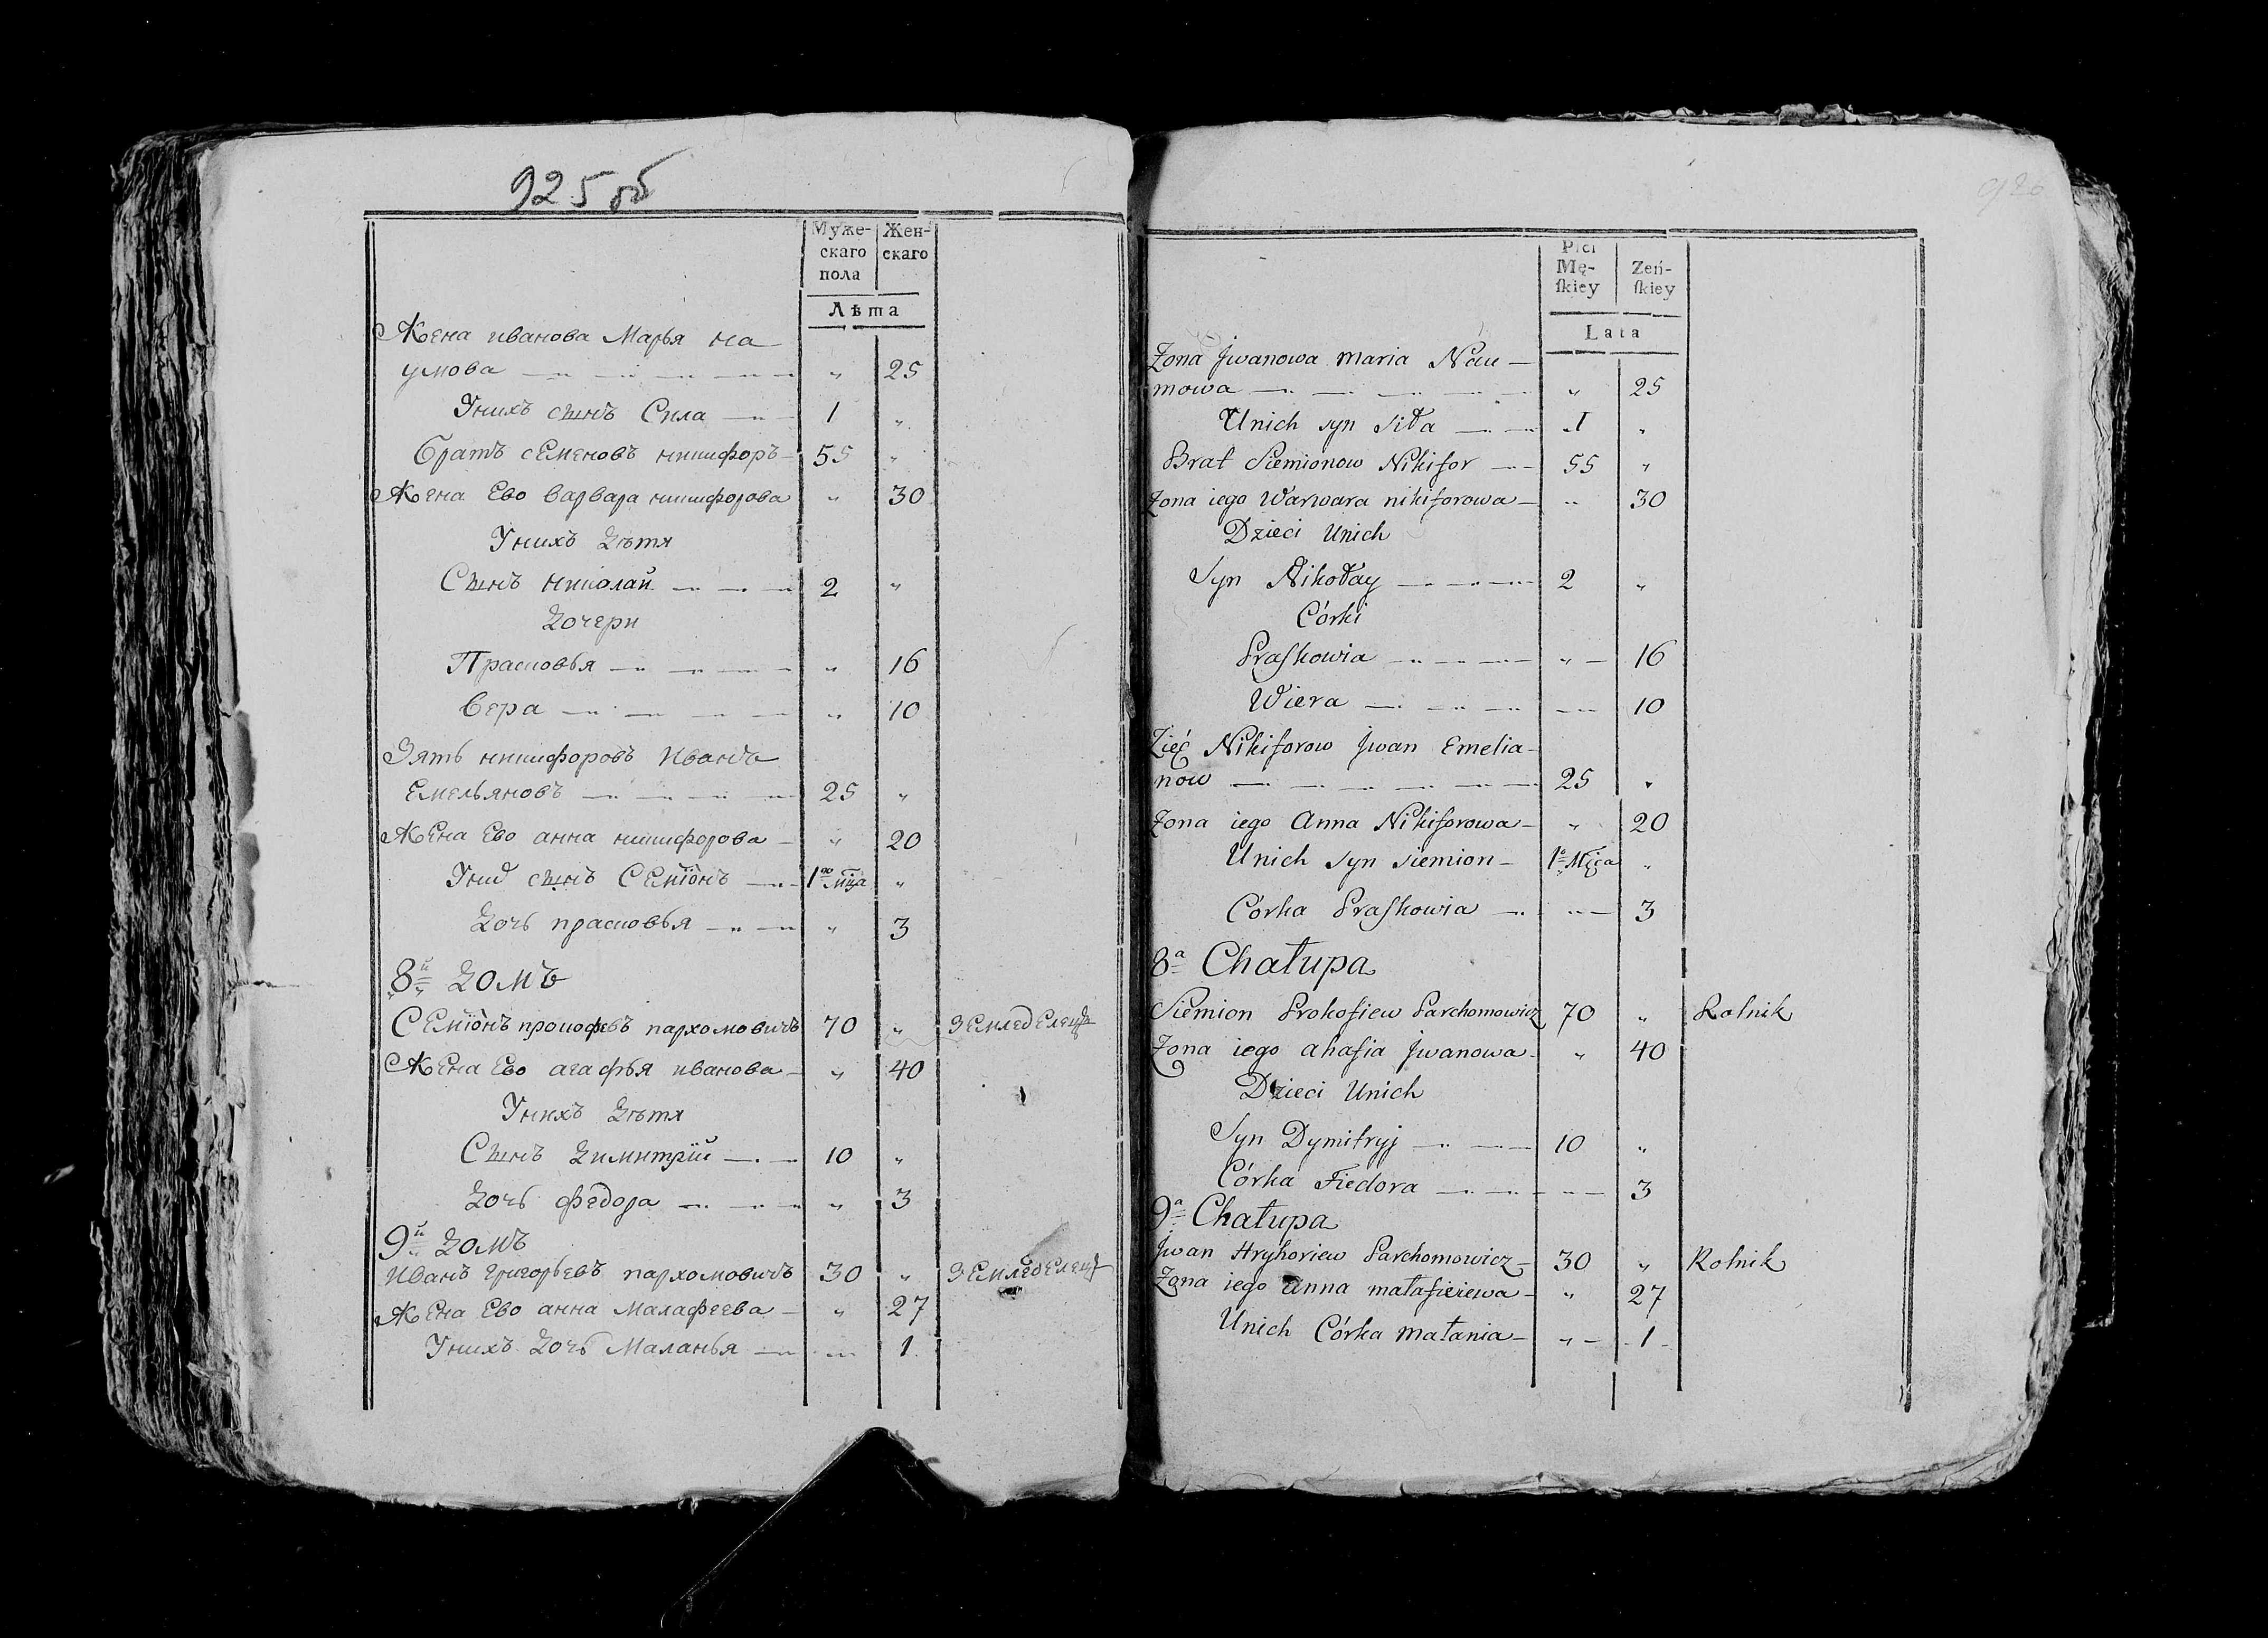 925 об
Муже-
скаго
пола
Жен-
скаго
Лѣта
Жена иванова Марья На
умова " 25
Унихъ сынъ Сила 1 "
Братъ семеновъ никифоръ 55 "
Жена Ево варвара никифорова " 30
Унихъ дѣтя
Сынъ николай 2 "
Дочери
Прасковья " 16
Вера " 10
Зять никифоровъ Иванъ
Емельяновъ 25 "
Жена Ево анна никифорова " 20
сынъ Семіонъ 1го мца "
Дочь прасковья " 3
8й домъ
Семіонъ прокофьевъ пархомовичъ 70 " Землед Елецъ
Жена Ево агафья иванова " 40
Унихъ дѣтя
Сынъ димитрій 10 "
Дочь федора " 3
9й домъ
Иванъ григорьевъ пархомовичъ 30 " ЗемледЕлецъ
Жена Ево анна малафеева " 27
Унихъ дочь Маланья " 1
926
Płci
Mę-
ſkiey
Zeń-
ſkiey
Lata
Zona Jwanowa maria Nau-
mowa " 25
Unich syn Siła 1 "
Brat Siemionow Nikifor 55 "
Zona iego Warwara nikiforowa " 30
Dzieci Unich
Syn Nikołay 2 "
Córki
Praſkowia " 16
Wiera " 10
Zięć Nikiforow Jwan Emelia-
now 25 "
Zona iego Anna Nikiforowa " 20
Unich syn siemion 1° Mśca "
Córka Praſkowia " 3
8a Chałupa
Siemion Prokofiew Parchomowicz 70 " Rolnik
Zona iego ahafia Jwanowa " 40
Dzieci Unich
Syn Dymitryj 10 "
Córka Fiedora " 3
9a Chałupa
Jwan Hryhoriew Parchomowicz 30 " Rolnik
Zona iego anna małafieiewa " 27
Unich Córka małania " 1